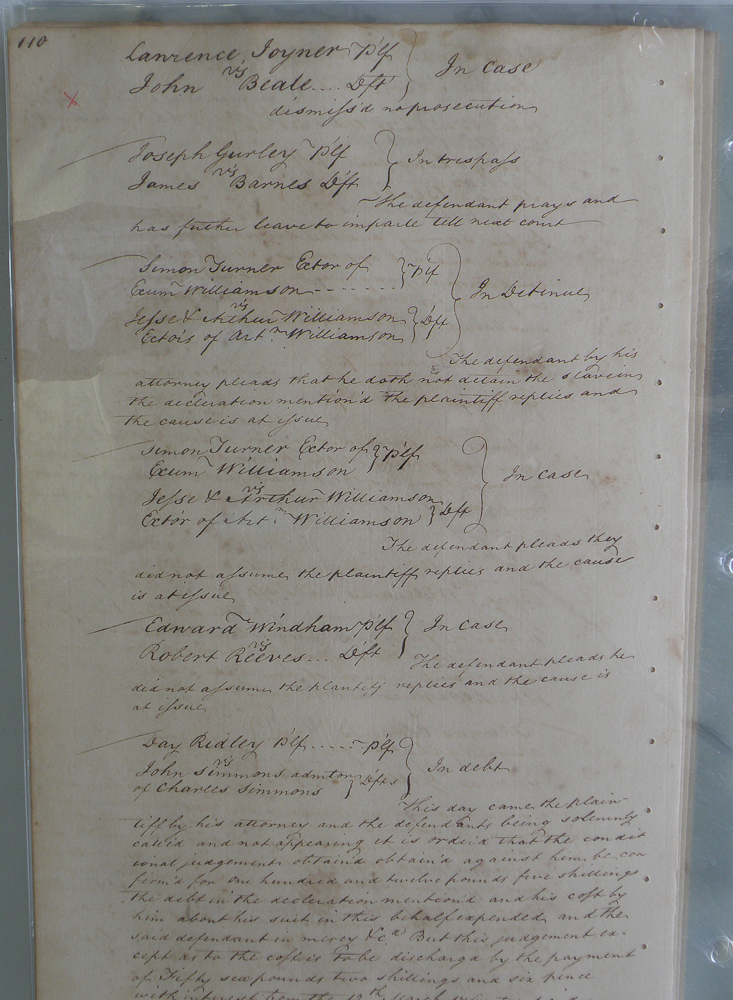 110
Lawrence Joyner Plf
vs
John Beale.... Dft
In case
dismiss'd no prosecution
Joseph Gurley Plf
vs
James Barnes Dft
In trespass
The defendant prays and
has further leave to imparle till next court
Simon Turner Extor of
Exum Williamson - - - - - - - Plf
vs
Jesse & Arthur Williamson
Extors of Art.m Williamson Dft
In Detinue
The defendant by his
attorney pleads that he doth not detain the slave in
the decleration mention'd the plaintiff replies and
the cause is at issue
Simon Turner Extor of
Exum Williamson Plf
vs
Jesse & Arthur Williamson
Extor of Art.m Williamson Dft
In case
The defendant pleads they
did not assume the plaintiff replies and the cause
is at issue
Edward Windham Plf
vs
Robert Reeves... Dft
In case
The defendant pleads he
did not assume the plantiff replies and the cause is
at issue
Day Ridley Plf ...... Plf
vs
John Simmons admtor
of Charles Simmons Dfts
In debt
This day came the plain-
tiff by his attorney and the defendants being solemnly
call'd and not appearing it is order'd that the condit
ional judgements obtain'd obtain'd against him be con
firm'd for one hundred and twelve pounds five shillings
the debt in the decleration mention'd and his cost by
him about his suit in this behalf expended, and the
said defendant in mercy &c.a But this judgement ex-
cept as to the cost is to be discharg'd by the payment
of Fifty six pounds two shillings and six pence
with interest from the